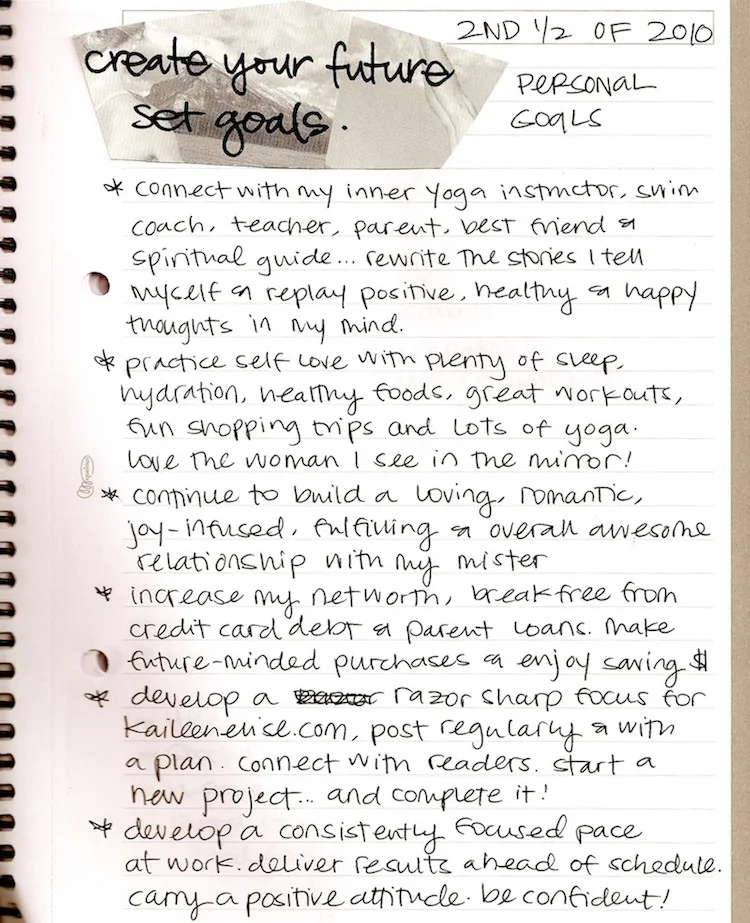 2ND 1/2 OF 2010
create your future
set goals.
PERSONAL
GOALS
* connect with my inner yoga instructor, swim
coach, teacher, parent, best friend &
spiritual guide... rewrite the stories I tell
myself & replay positive, healthy & happy
thoughts in my mind.
* practice self love with plenty of sleep,
hydration, healthy foods, great workouts,
fun shopping trips and lots of yoga.
love the woman I see in the mirror!
* continue to build a loving, romantic,
joy-infused, fulfilling & overall awesome
relationship with my mister
* increase my networth, break free from
credit card debt & parent loans. make
future-minded purchases & enjoy saving $
* develop a razor sharp focus for
kaileenelise.com, post regularly & with
a plan. connect with readers. start a
new project... and complete it!
* develop a consistently focused pace
at work. deliver results ahead of schedule.
carry a positive attitude. be confident!